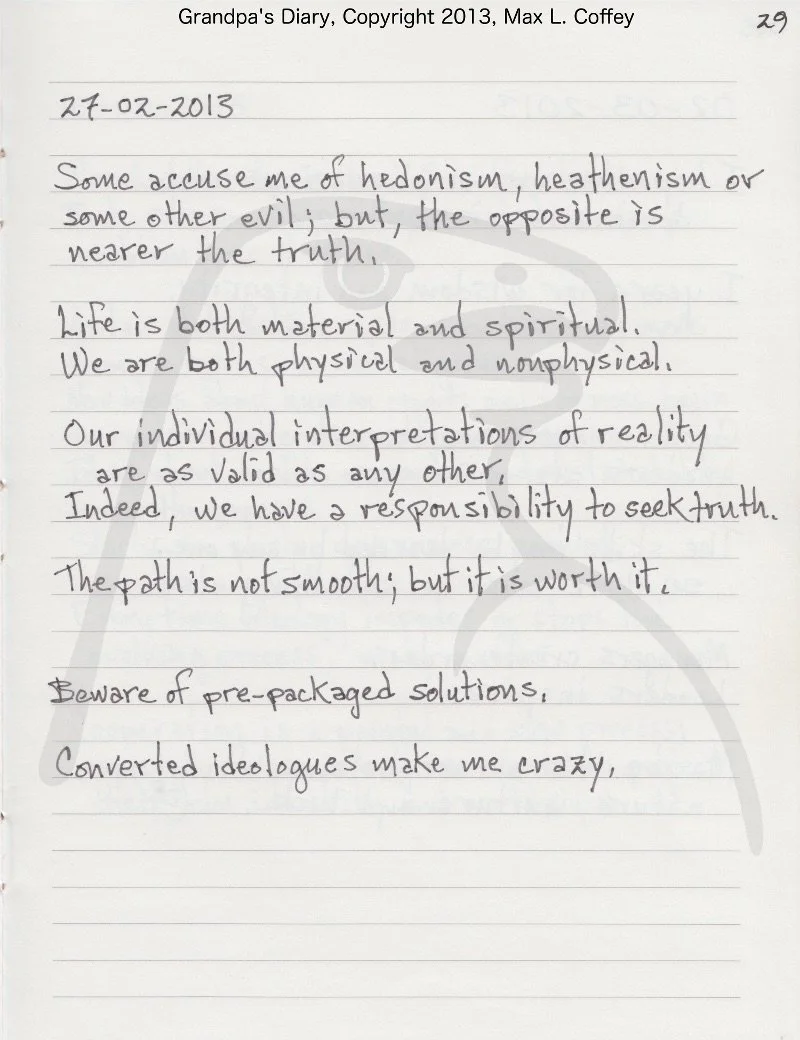 Grandpa's Diary, Copyright 2013, Max L. Coffey
29
27-02-2013
Some accuse me of hedonism, heathenism or
some other evil; but, the opposite is
nearer the truth.
Life is both material and spiritual.
We are both physical and nonphysical.
Our individual interpretations of reality
are as valid as any other.
Indeed, we have a responsibility to seek truth.
The path is not smooth; but it is worth it.
Beware of pre-packaged solutions.
Converted ideologues make me crazy.